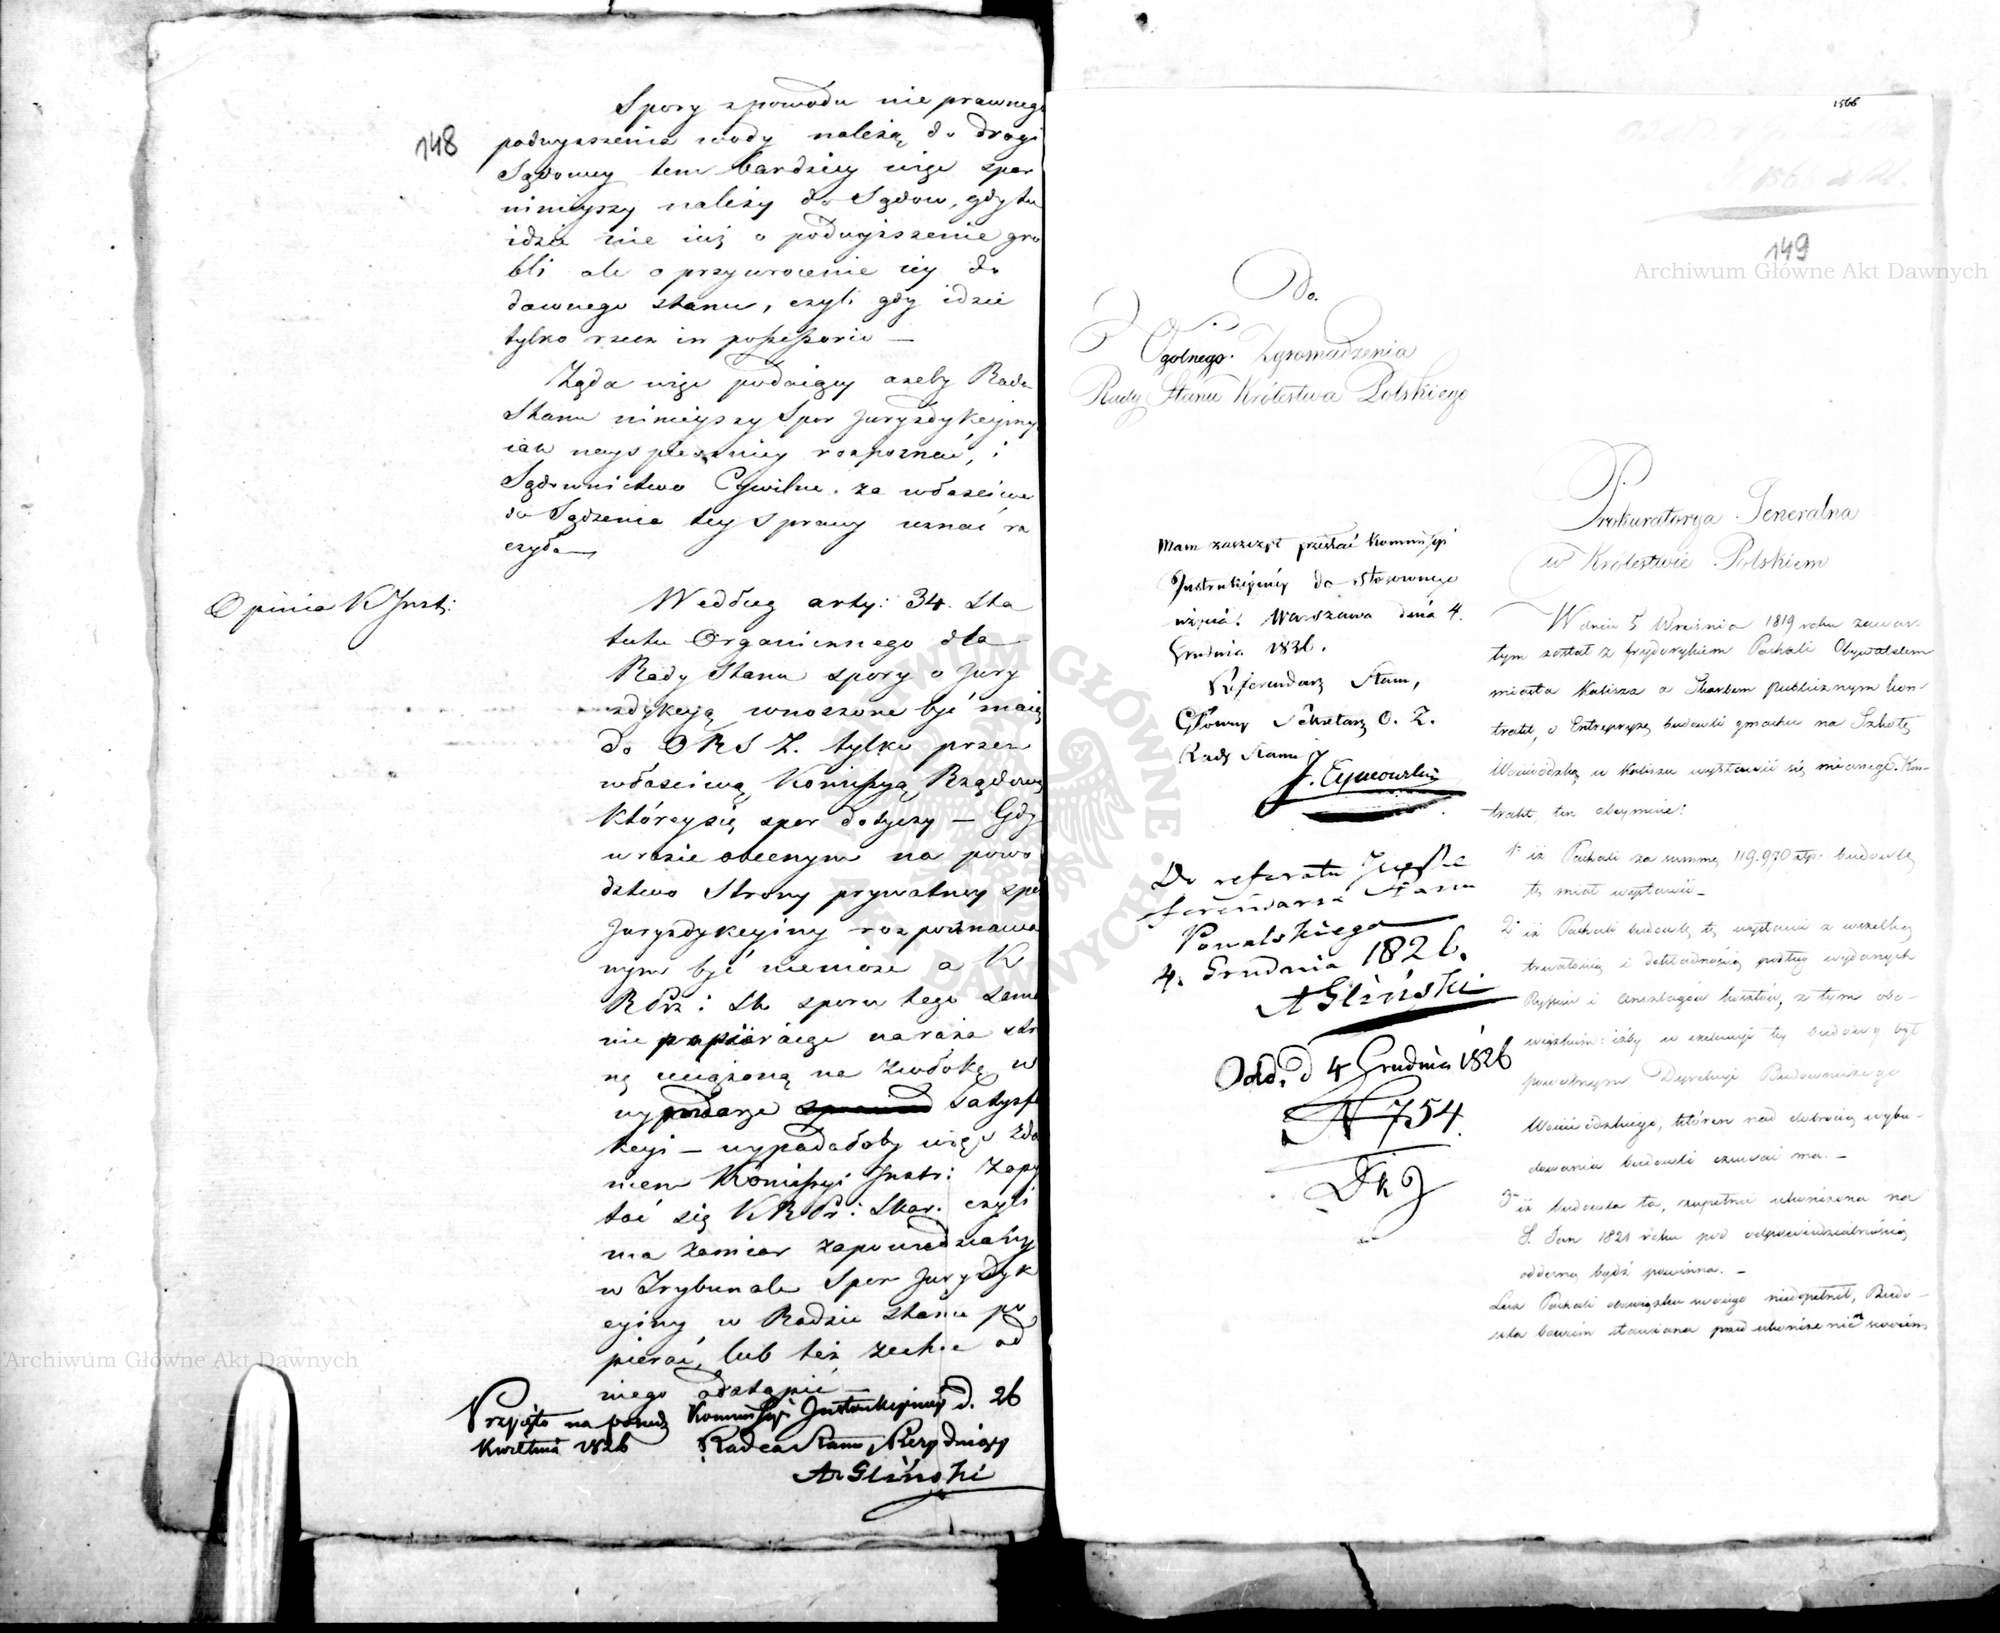 148
Spory z powodu nie prawnego
podwyższenia wody należą do drogi
Sądowey tem bardziey więc spor
ninieyszy należy do Sądow, gdy tu
idzie nie iuż o podwyższenie gro
bli ale o przywrocenie iey do
dawnego stanu, czyli gdy idzie
tylko rzecz in possessorio —
Żąda więc podaiący azeby Rada
Stanu ninieyszy Spor Juryzdykcyiny
iak nayspieszniey rozpoznać, i
Sądownictwo Cywilne za właściwe
do Sądzenia tey Sprawy uznać ra
czyła
Opinia K Instr:
Według arty: 34. Sta
tutu Organicznego dla
Rady Stanu spory o Jury
zdykcyą wnoszone być maią
do O R S Z. tylko przez
właściwą Kommissyą Rządową
któreysię spor dotyczy — Gdy
w razie obecnym na powo
dztwo Strony prywatney spor
Juryzdykcyiny rozpoznawa
nym być niemoże a K
R Prz: Sk sporu tego
nie popieraiąc naraża str
nę na zwłokę w
satysfa
kcyi — wypadałoby więc zda
niem Kommissyi Instr: zapy
tać się K R Pr: Skar. czyli
ma zamiar zapowiedziany
w Trybunale Spor Juryzdyk
cyiny w Radzie Stanu po
pierać, lub też zechce od
niego odstąpić —
Przyięto na posiedz Kommissyi Instrukcyiney d. 26
Kwietnia 1826 Radca Stanu Prezyduiący
A Gliński
1566
149
Do.
Ogolnego Zgromadzenia
Rady Stanu Królestwa Polskiego
Mam zaszczyt przesłać Kommissyi
Instrukcyiney do stosownego
użycia. Warszawa dnia 4.
Grudnia 1826.
Referendarz Stanu,
Główny Sekretarz O. Z.
Rady Stanu
J. Tymowski
Do referatu JW Re
ferendarza Stanu
Kowalskiego
4. Grudnia 1826.
A Gliński
Odd. d 4 Grudnia 1826
N 754.
Prokuratorya Generalna
w Królestwie Polskiem
W dniu 5 Września 1819 roku zawar-
tym został z Frydrykiem Pachali Obywatelem
miasta Kalisza a Skarbem Publicznym kon-
trakt, o Entrepryzę budowli gmachu na Szkołę
Woiewódzką w Kaliszu wystawić się mianego. Kon-
trakt ten obeymuie:
1° iż Pachali za summę 119.970 złp. budowlę
tę miał wystawić —
2° iż Pachali budowlę tę wystawi z wszelką
trwałością i dokładnością podług wydanych
Rysów i Anszlagów kosztów, z tym obo-
wiązkiem: iżby w exekucyi tey budowy był
powolnym Dyrekcyi Budowniczego
Woiewódzkiego, któren nad dobrocią wybu-
dowania budowli czuwać ma. —
3° iż budowla ta, zupełnie ukończona na
S. Jan 1821 roku pod odpowiedzialnością
oddaną bydź powinna. —
Lecz Pachali obowiązku swoiego niedopełnił, Budo-
wla bowiem stawiana przed ukończeniem swoiem
Archiwum Główne Akt Dawnych
Archiwum Główne Akt Dawnych
ARCHIWUM GŁÓWNE AKT DAWNYCH